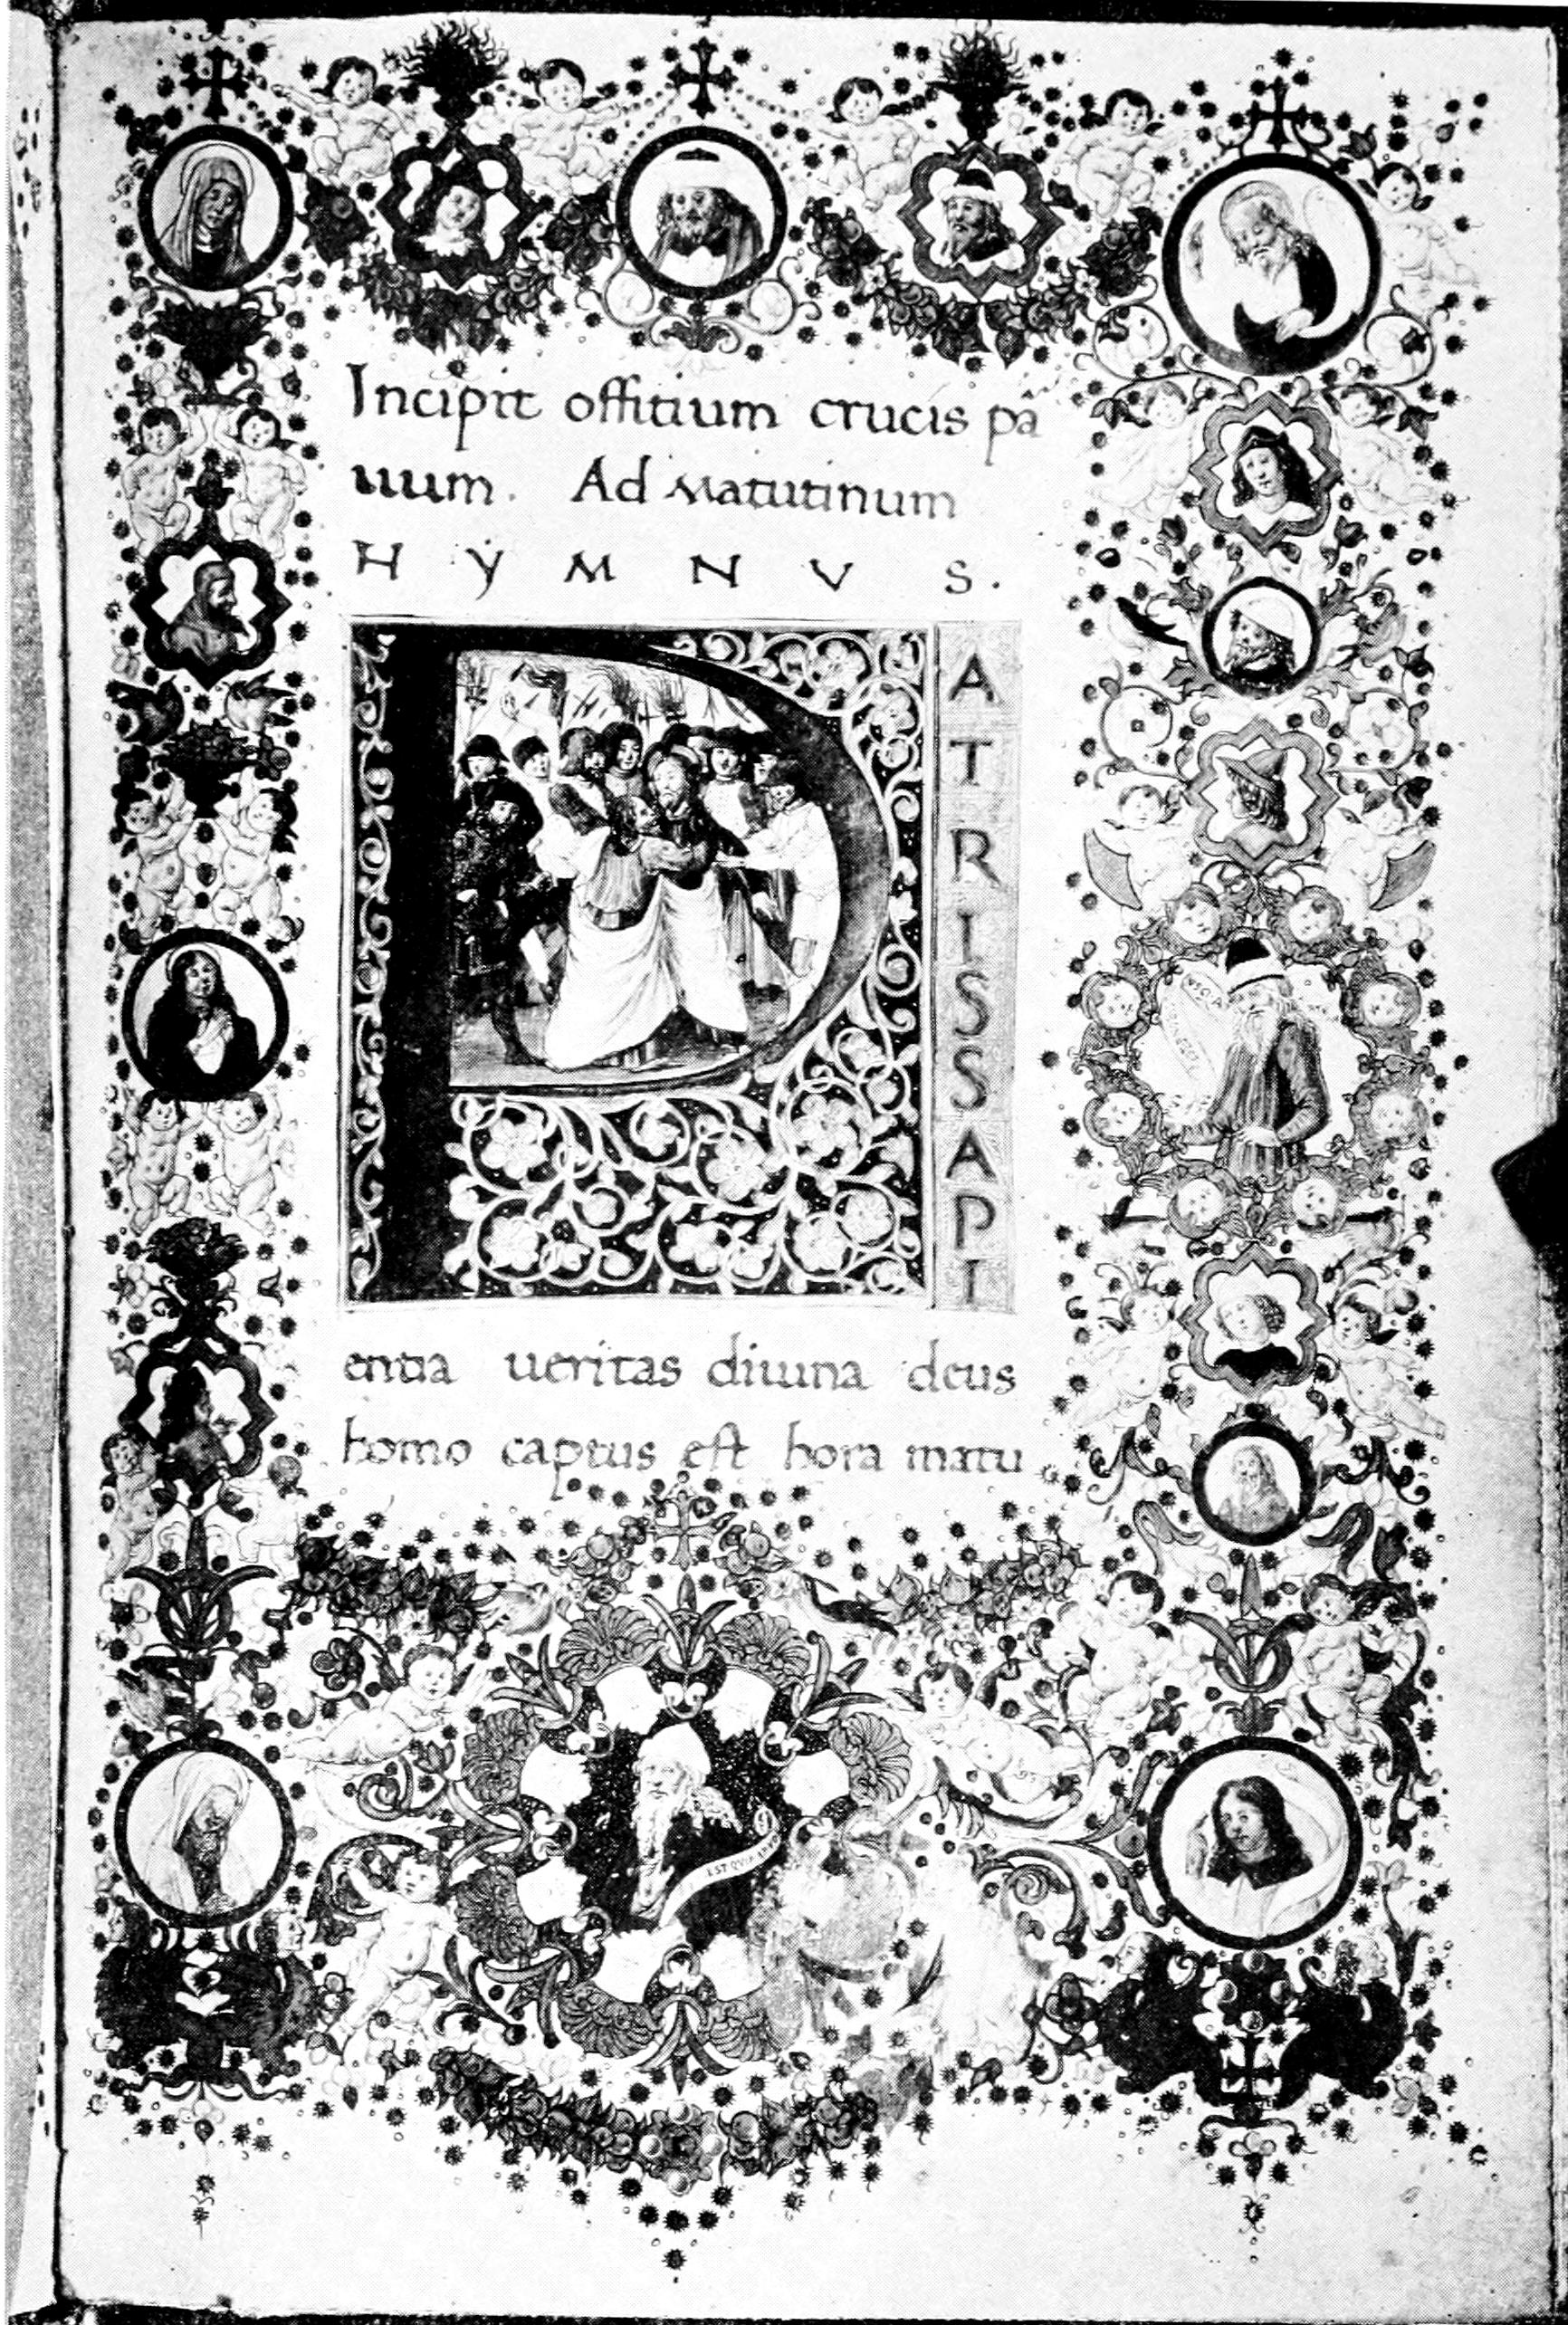 Incipit offitium crucis pâ
uuum. Ad Matutinum
HYMNVS.
PATRISSAPI
entia ueritas diuina deus
homo captus est hora matu